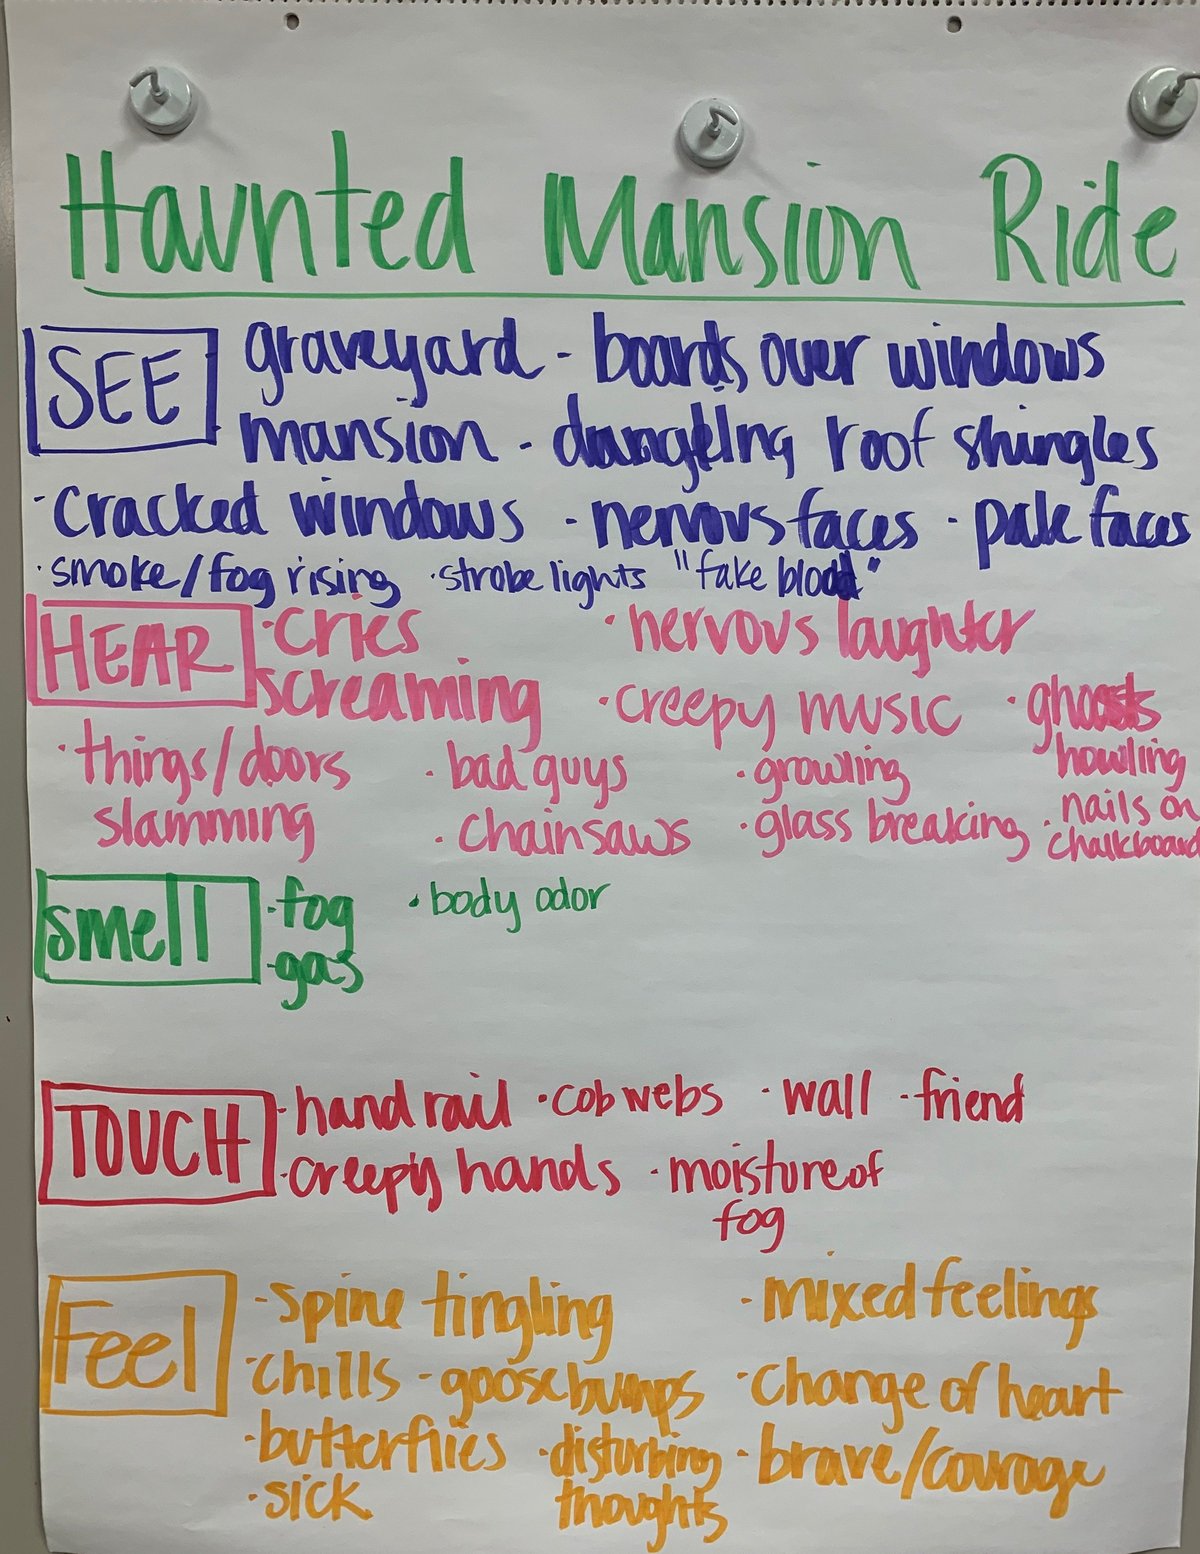 Haunted Mansion Ride
SEE graveyard - boards over windows
mansion - dangling roof shingles
- cracked windows - nervous faces - pale faces
· smoke/fog rising · strobe lights "fake blood"
HEAR · cries · nervous laughter
screaming · creepy music · ghosts
howling
· things/doors · bad guys · growling
slamming · chainsaws · glass breaking · nails on
chalkboard
smell · fog · body odor
· gas
TOUCH - hand rail · cobwebs · wall - friend
· creepy hands · moisture of
fog
Feel - spine tingling · mixed feelings
· chills - goosebumps · change of heart
· butterflies · disturbing · brave/courage
· sick thoughts